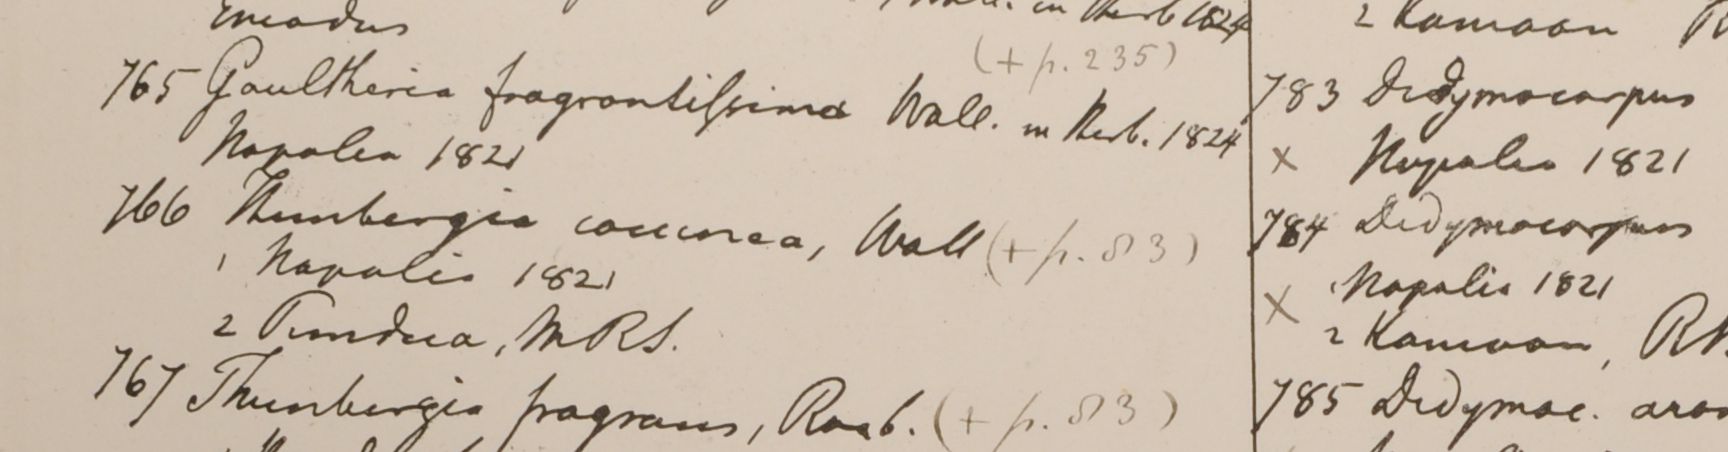 Emodus
Wall. in Herb 1824
(+ p. 235)
765 Gaultheria fragrantissima Wall. in Herb. 1824
Napalia 1821
766 Thunbergia coccinea, Wall (+ p. 83)
1 Napalia 1821
2 Pundua, MRS.
767 Thunbergia fragrans, Roxb. (+ p. 83)
2 Kamaon
783 Didymocarpus
x Napalia 1821
784 Didymocarpus
1 Napalia 1821
x
2 Kamaon, R
785 Didymoc. aro